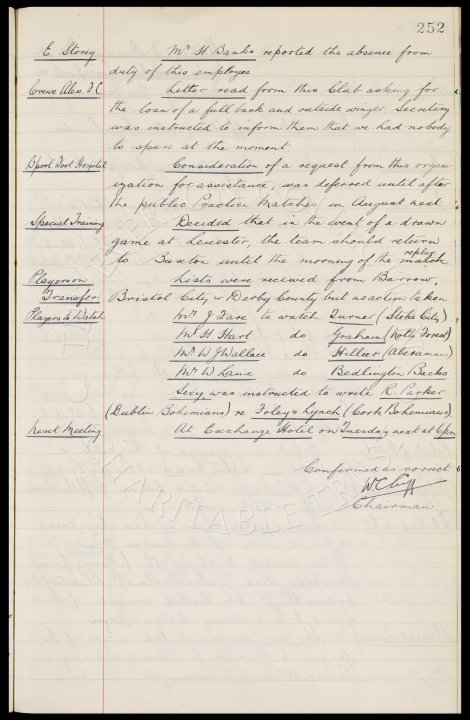 252
E. Storey Mr H Banks reported the absence from
duty of this employee
Crewe Alex. F.C. Letter read from this Club asking for
the loan of a full back and outside winger. Secretary
was instructed to inform them that we had nobody
to spare at the moment.
L'pool Foot Hospital Consideration of a request from this organ-
ization for assistance, was deferred until after
the public Practice Matches in August next.
Special Training Decided that in the event of a drawn
game at Leicester, the team should return
replay
to Buxton until the morning of the match
Players on Lists were received from Barrow,
Transfer Bristol City & Derby County but no action taken
Players to Watch Mr J Fare to watch Turner (Stoke City)
Mr H Hart do Graham (Notts Forest)
Mr W J Wallace do Hillier (Aberaman)
Mr W Lawe do Bedlington Backs
Secy was instructed to write R Parker
(Dublin Bohemians) re Foley & Lynch (Cork Bohemians)
Next Meeting At Exchange Hotel on Tuesday next at 6 pm
Confirmed as correct
W.C. Cuff
Chairman
CHARITABLE TRUST